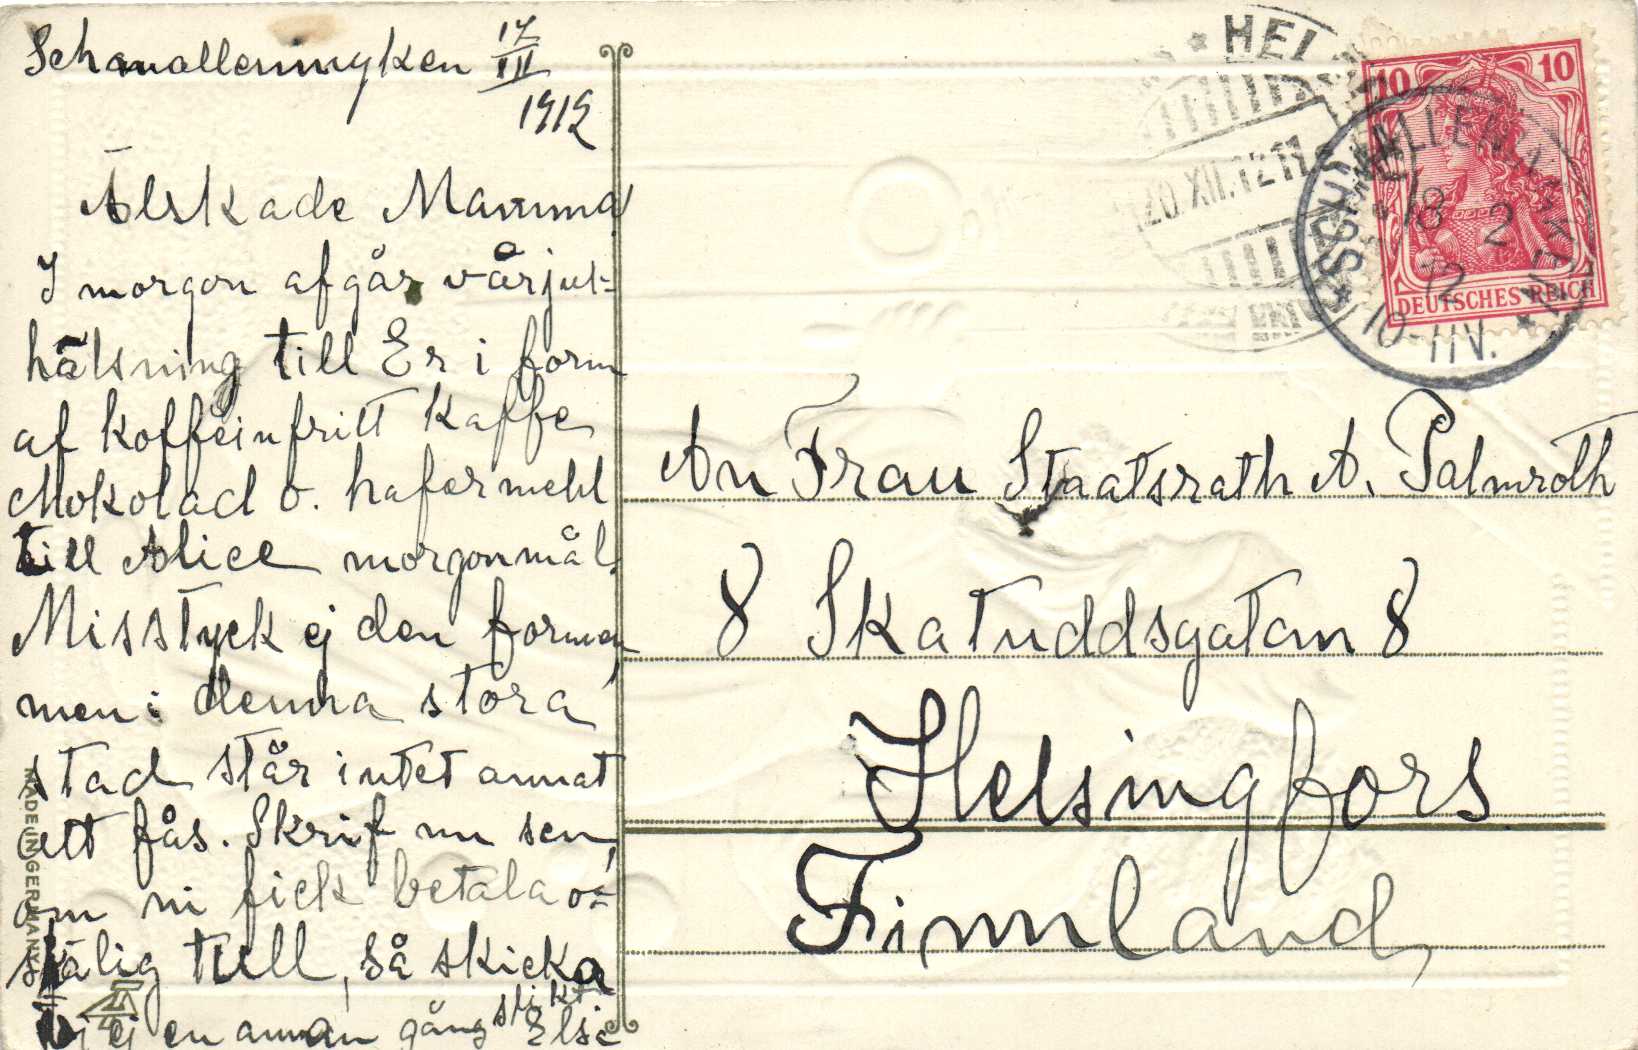 Schmalleningken 17/XII
1912
Älskade Mamma
I morgon afgår vår jul=
hälsning till Er i form
af koffeinfritt kaffe
chokolad o. hafermehl
till Alice morgonmål.
Misstyck ej den formen,
men i denna stora
stad står intet annat
att fås. Skrif nu sen,
om ni fick betala o=
skälig tull, så skicka
vi ej en annan gång slikt
Else
MADE IN GERMANY
HELSI
20.XII.12 11
10 10
DEUTSCHES REICH
SCHMALLENINGKEN
18 2
12
10-11V.
An Frau Staatsrath A. Palmroth
8 Skatuddsgatan 8
Helsingfors
Finnland